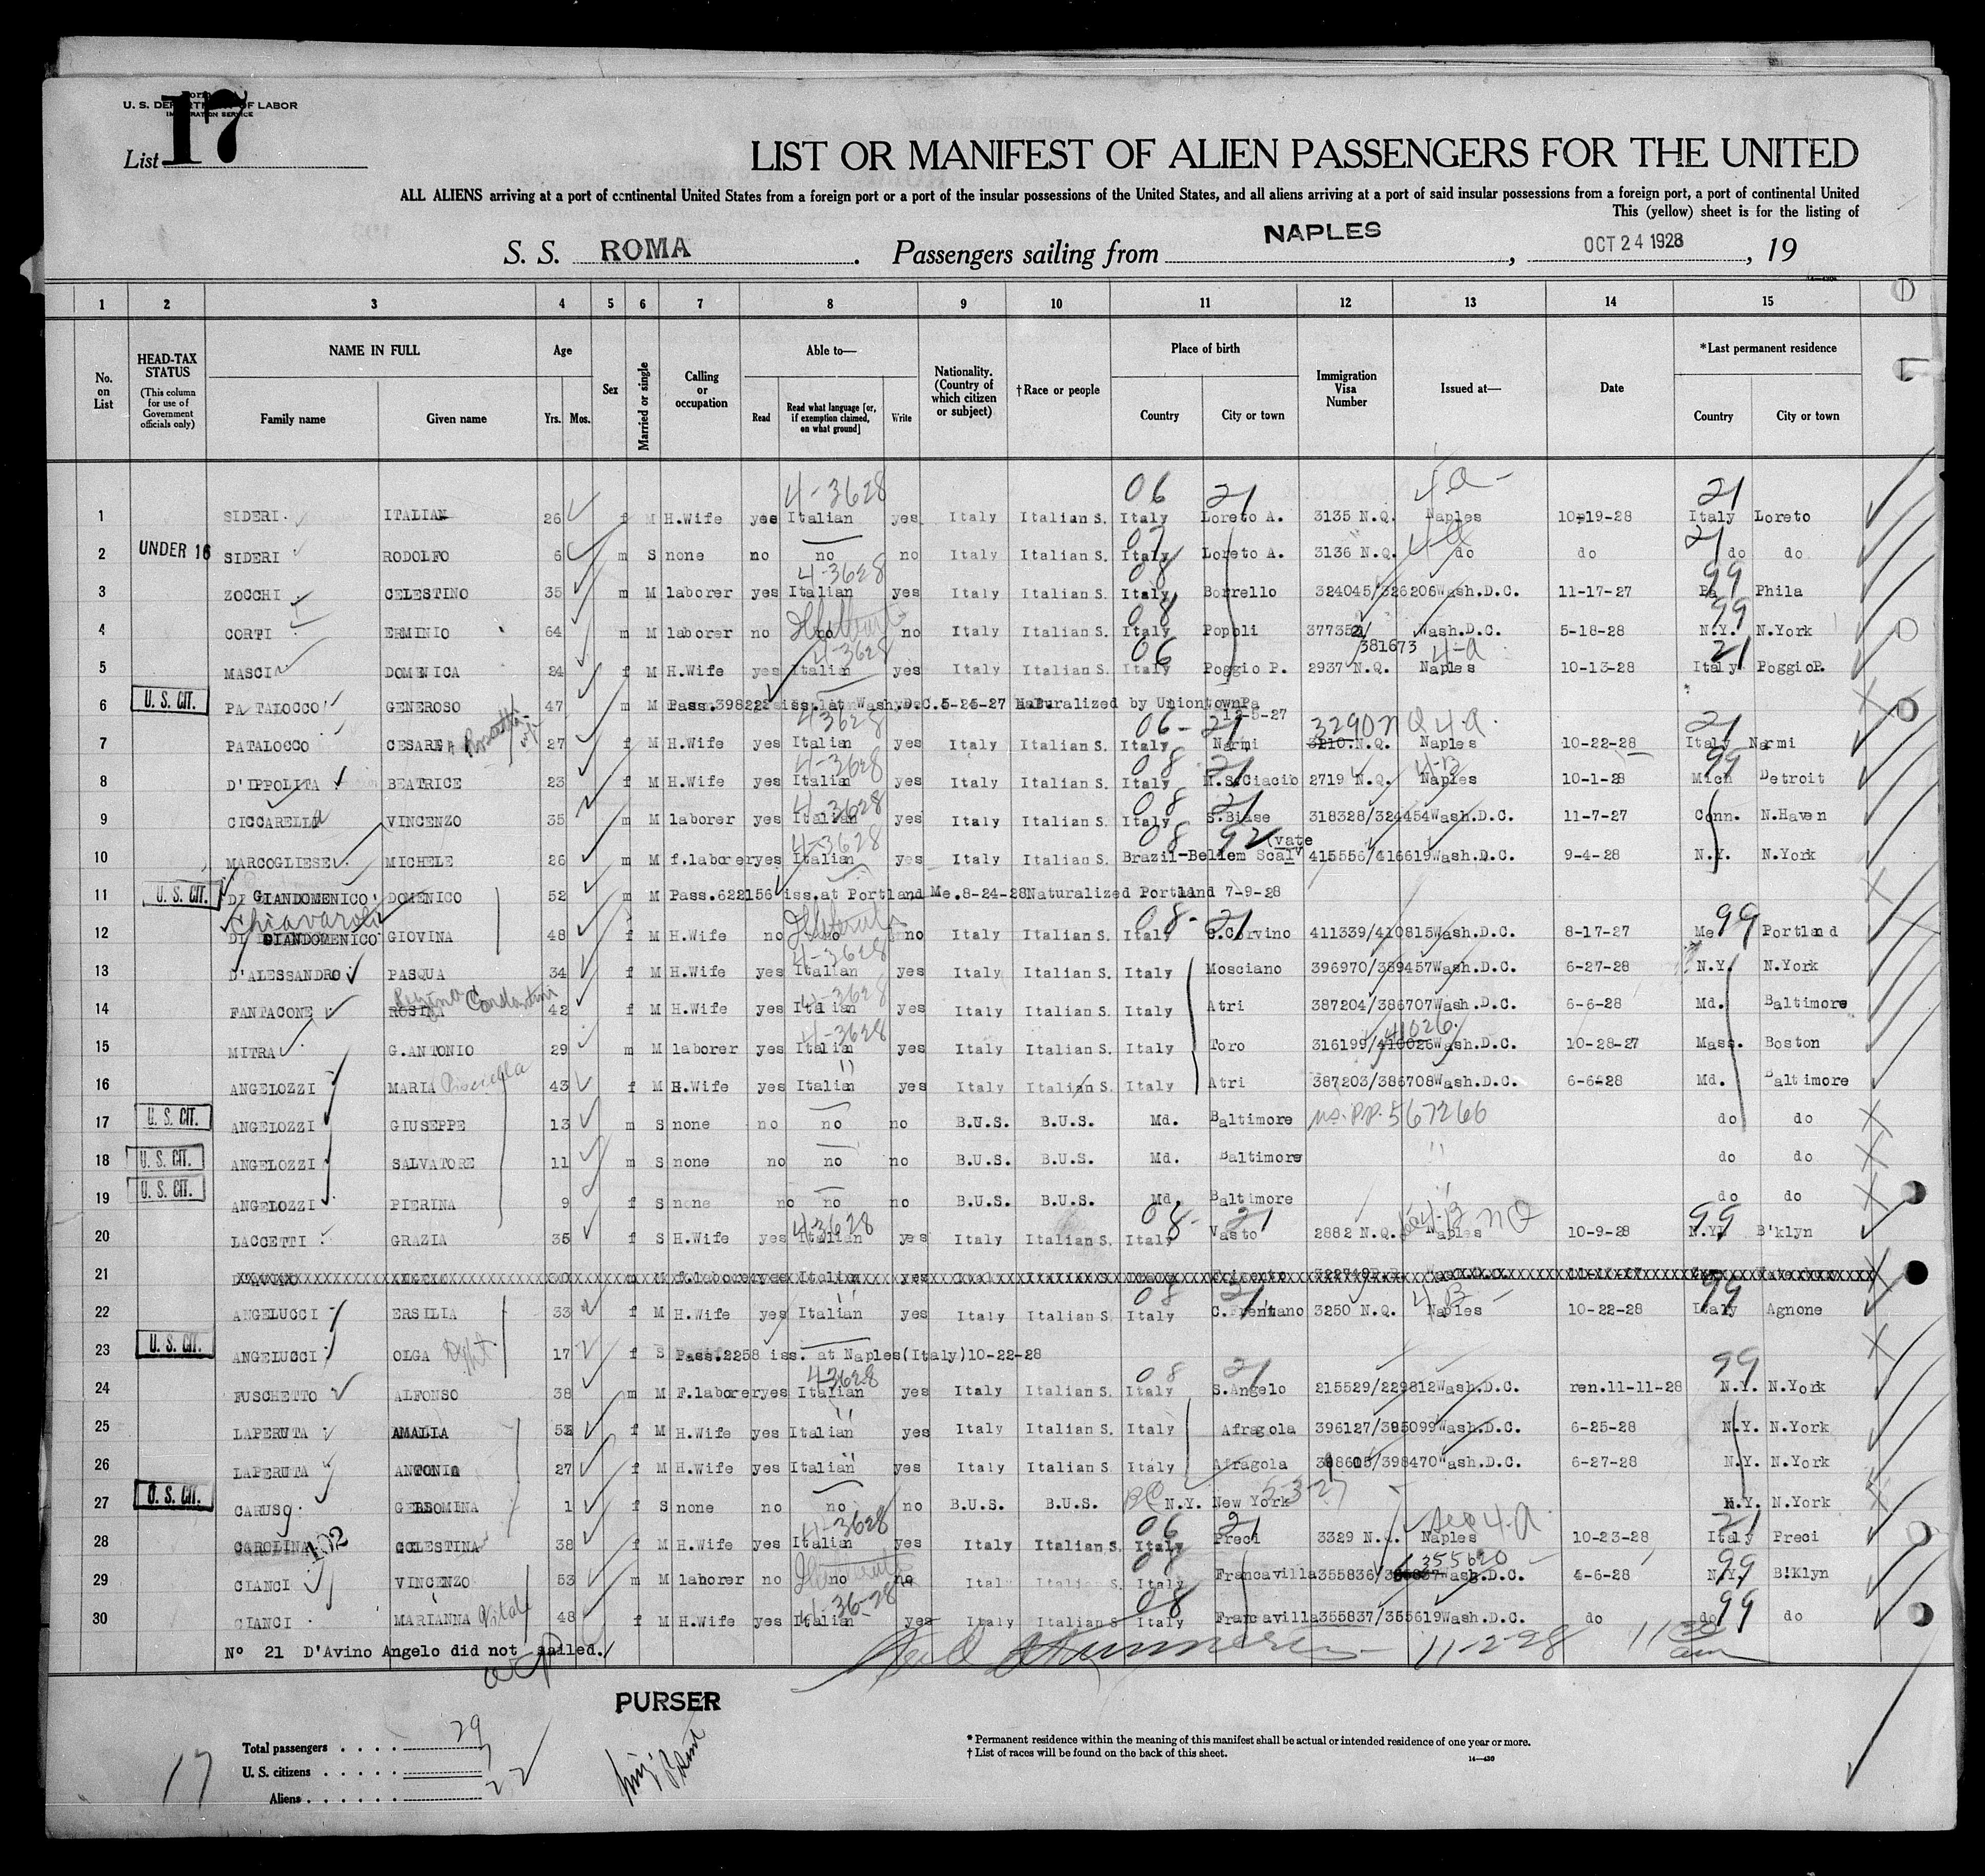 U. S. DEPARTMENT OF LABOR
IMMIGRATION SERVICE
List 17
LIST OR MANIFEST OF ALIEN PASSENGERS FOR THE UNITED
ALL ALIENS arriving at a port of continental United States from a foreign port or a port of the insular possessions of the United States, and all aliens arriving at a port of said insular possessions from a foreign port, a port of continental United
This (yellow) sheet is for the listing of
S. S. ROMA. Passengers sailing from NAPLES, OCT 24 1928, 19
14—430
1 2 3 4 5 6 7 8 9 10 11 12 13 14 15
No. on List
HEAD-TAX STATUS (This column for use of Government officials only)
NAME IN FULL
Family name Given name
Age
Yrs. Mos.
Sex
Married or single
Calling or occupation
Able to—
Read Read what language [or, if exemption claimed, on what ground] Write
Nationality. (Country of which citizen or subject)
†Race or people
Place of birth
Country City or town
Immigration Visa Number
Issued at—
Date
*Last permanent residence
Country City or town
4-3628 06 21 4-a- 21
1 SIDERI ITALIAN 26 f M H.Wife yes Italian yes Italy Italian S. Italy Loreto A. 3135 N.Q. Naples 10-19-28 Italy Loreto
2 UNDER 16 SIDERI RODOLFO 6 m S none no no no Italy Italian S. Italy Loreto A. 3136 N.Q. do do do do
4-3628 08 99
3 ZOCCHI CELESTINO 35 m M laborer yes Italian yes Italy Italian S. Italy Borrello 324045/326206 Wash.D.C. 11-17-27 Pa Phila
08 99
4 CORTI ERMINIO 64 m M laborer no no no Italy Italian S. Italy Popoli 377352/381673 Wash.D.C. 5-18-28 N.Y. N.York
4-3628 06 4-a 21
5 MASCIA DOMENICA 24 f M H.Wife yes Italian yes Italy Italian S. Italy Poggio P. 2937 N.Q. Naples 10-13-28 Italy PoggioP.
6 U. S. CIT. PATALOCCO GENEROSO 47 m M Pass.39822 iss. at Wash.D.C. 5-25-27 Naturalized by Uniontown Pa 12-5-27
4-3628 06-21 3290 N Q 4-a. 21
7 PATALOCCO CESARE Rosetta 27 f M H.Wife yes Italian yes Italy Italian S. Italy Narmi 3210.N.Q. Naples 10-22-28 Italy Narmi
4-3628 08 21 4-B 99
8 D'IPPOLITA BEATRICE 23 f M H.Wife yes Italian yes Italy Italian S. Italy M.S.Ciacio 2719 N.Q. Naples 10-1-28 Mich Detroit
4-3628 08 21
9 CICCARELLA VINCENZO 35 m M laborer yes Italian yes Italy Italian S. Italy S.Biase 318328/324454 Wash.D.C. 11-7-27 Conn. N.Haven
4-3628 08 92
10 MARCOGLIESE MICHELE 26 m M f.laborer yes Italian yes Italy Italian S. Brazil-Bellem Scalvate 415556/416619 Wash.D.C. 9-4-28 N.Y. N.York
11 U. S. CIT. DI GIANDOMENICO DOMENICO 52 m M Pass.622156 iss.at Portland Me.8-24-28 Naturalized Portland 7-9-28
Chiavaroli 08-21 99
12 DI GIANDOMENICO GIOVINA 48 f M H.Wife no no no Italy Italian S. Italy C.Corvino 411339/410815 Wash.D.C. 8-17-27 Me Portland
4-3628
13 D'ALESSANDRO PASQUA 34 f M H.Wife yes Italian yes Italy Italian S. Italy Mosciano 396970/389457 Wash.D.C. 6-27-28 N.Y. N.York
4-3628
14 FANTACONE ROSINA 42 f M H.Wife yes Italian yes Italy Italian S. Italy Atri 387204/386707 Wash.D.C. 6-6-28 Md. Baltimore
4-3628 41026
15 MITRA G.ANTONIO 29 m M laborer yes Italian yes Italy Italian S. Italy Toro 316199/410026 Wash.D.C. 10-28-27 Mass. Boston
16 ANGELOZZI MARIA 43 f M H.Wife yes Italian yes Italy Italian S. Italy Atri 387203/386708 Wash.D.C. 6-6-28 Md. Baltimore
17 U. S. CIT. ANGELOZZI GIUSEPPE 13 m S none no no no B.U.S. B.U.S. Md. Baltimore U.S. P.P. 567266 do do
18 U. S. CIT. ANGELOZZI SALVATORE 11 m S none no no no B.U.S. B.U.S. Md. Baltimore " do do
19 U. S. CIT. ANGELOZZI PIERINA 9 f S none no no no B.U.S. B.U.S. Md. Baltimore " do do
4-3628 08-21 4-B NQ 99
20 LACCETTI GRAZIA 35 f S H.Wife yes Italian yes Italy Italian S. Italy Vasto 2882 N.Q. Naples 10-9-28 N.Y. B'klyn
21
08 21 4-B 99
22 ANGELUCCI ERSILIA 33 f M H.Wife yes Italian yes Italy Italian S. Italy C.Frentano 3250 N.Q. Naples 10-22-28 Italy Agnone
23 U. S. CIT. ANGELUCCI OLGA 17 f S Pass.2258 iss. at Naples(Italy)10-22-28
4-3628 08 21 99
24 FUSCHETTO ALFONSO 38 m M F.laborer yes Italian yes Italy Italian S. Italy S.Angelo 215529/229812 Wash.D.C. ren.11-11-28 N.Y. N.York
25 LAPERUTA AMALIA 52 f M H.Wife yes Italian yes Italy Italian S. Italy Afragola 396127/395099 Wash.D.C. 6-25-28 N.Y. N.York
26 LAPERUTA ANTONIA 27 f M H.Wife yes Italian yes Italy Italian S. Italy Afragola 398470 Wash.D.C. 6-27-28 N.Y. N.York
27 U. S. CIT. CARUSO GELSOMINA 1 f S none no no no B.U.S. B.U.S. N.Y. New York 5-3-27 N.Y. N.York
4-3628 06 21 see 4-A. 21
28 CAROLINA 102 CELESTINA 38 f M H.Wife yes Italian yes Italy Italian S. Italy Preci 3329 N.Q. Naples 10-23-28 Italy Preci
08 355620 99
29 CIANCI VINCENZO 53 m M laborer no no no Italy Italian S. Italy Francavilla 355836/ Wash.D.C. 4-6-28 N.Y. B'Klyn
4-36-28 08 99
30 CIANCI MARIANNA Vitale 48 f M H.Wife yes Italian yes Italy Italian S. Italy Francavilla 355837/355619 Wash.D.C. do do do
Nº 21 D'Avino Angelo did not sailed./
11-2-28 11 30 am
PURSER
Total passengers 29
U. S. citizens 7
Aliens 22
17
* Permanent residence within the meaning of this manifest shall be actual or intended residence of one year or more.
† List of races will be found on the back of this sheet.
14—430